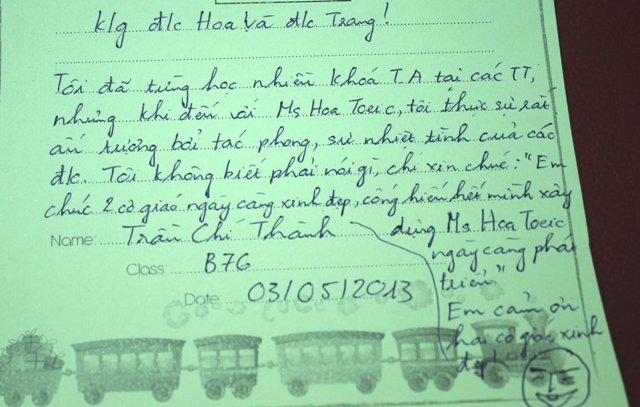 Klg đ/c Hoa và đ/c Trang!
Tôi đã từng học nhiều khoá T.A tại các TT,
nhưng khi đến với Ms Hoa Toeic, tôi thực sự rất
ấn tượng bởi tác phong, sự nhiệt tình của các
đ/c. Tôi không biết phải nói gì, chỉ xin chúc: "Em
chúc 2 cô giáo ngày càng xinh đẹp, cống hiến hết mình xây
dựng Ms Hoa Toeic
ngày càng phát
triển"
Em cảm ơn
hai cô giáo xinh
đẹp!
Name: Trần Chí Thành
Class: B76
Date: 03/05/2013
Good luck